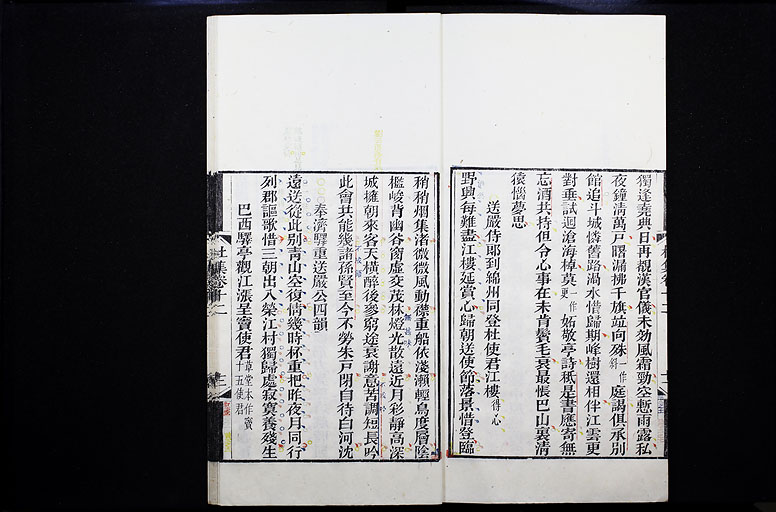 獨逢堯典日再覩漢官儀未効風霜勁空慙雨露私
夜鐘清萬戶曙漏拂千旗竝向殊一作斜庭謁俱承別
館追斗城憐舊路渦水惜歸期峰樹還相伴江雲更
對垂試迴滄海棹莫一作更妬敬亭詩秪是書應寄無
忘酒共持但令心事在未肯鬢毛衰最悵巴山裏清
猿惱夢思
送嚴侍郎到綿州同登杜使君江樓得心
野興每難盡江樓延賞心歸朝送使節落景惜登臨
稍稍烟集渚微微風動襟重船依淺瀨輕鳥度層陰
檻峻背幽谷窗虛交茂林燈光散遠近月彩靜高深
城擁朝來客天橫醉後參窮途衰謝意苦調短長吟
此會共能幾諸孫賢至今不勞朱戶閉自待白河沈
奉濟驛重送嚴公四韻
遠送從此別青山空復情幾時杯重把昨夜月同行
列郡謳歌惜三朝出入榮江村獨歸處寂寞養殘生
巴西驛亭觀江漲呈竇使君草堂本作竇十五使君
杜集卷十二